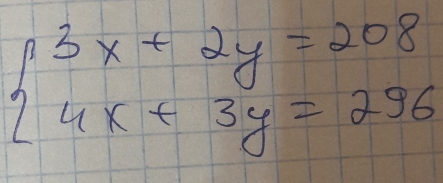 3x + 2y = 208
4x + 3y = 296